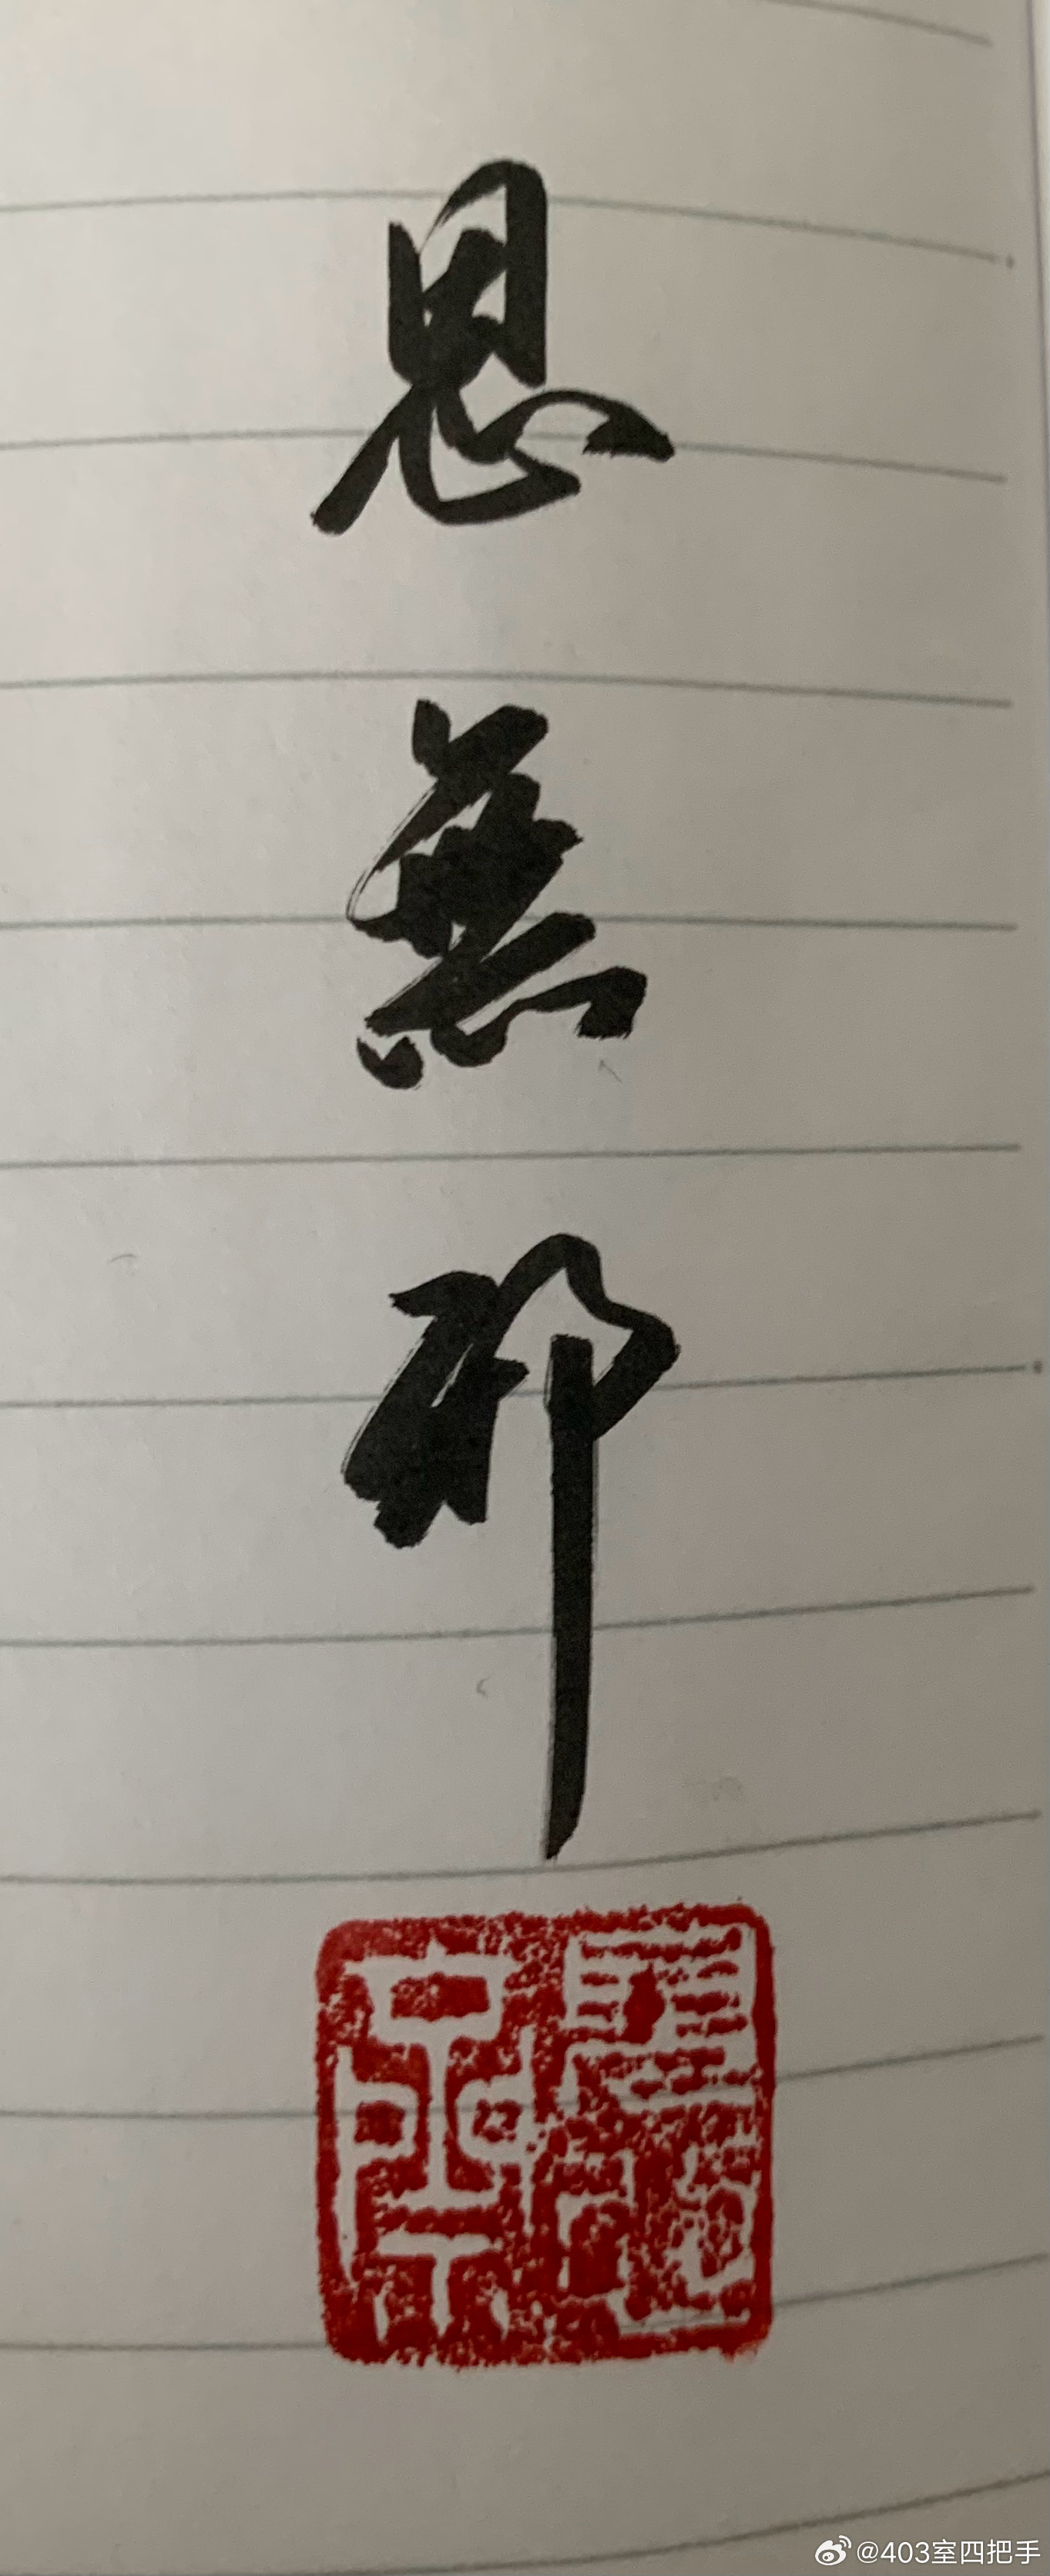 思無邪
@403室四把手